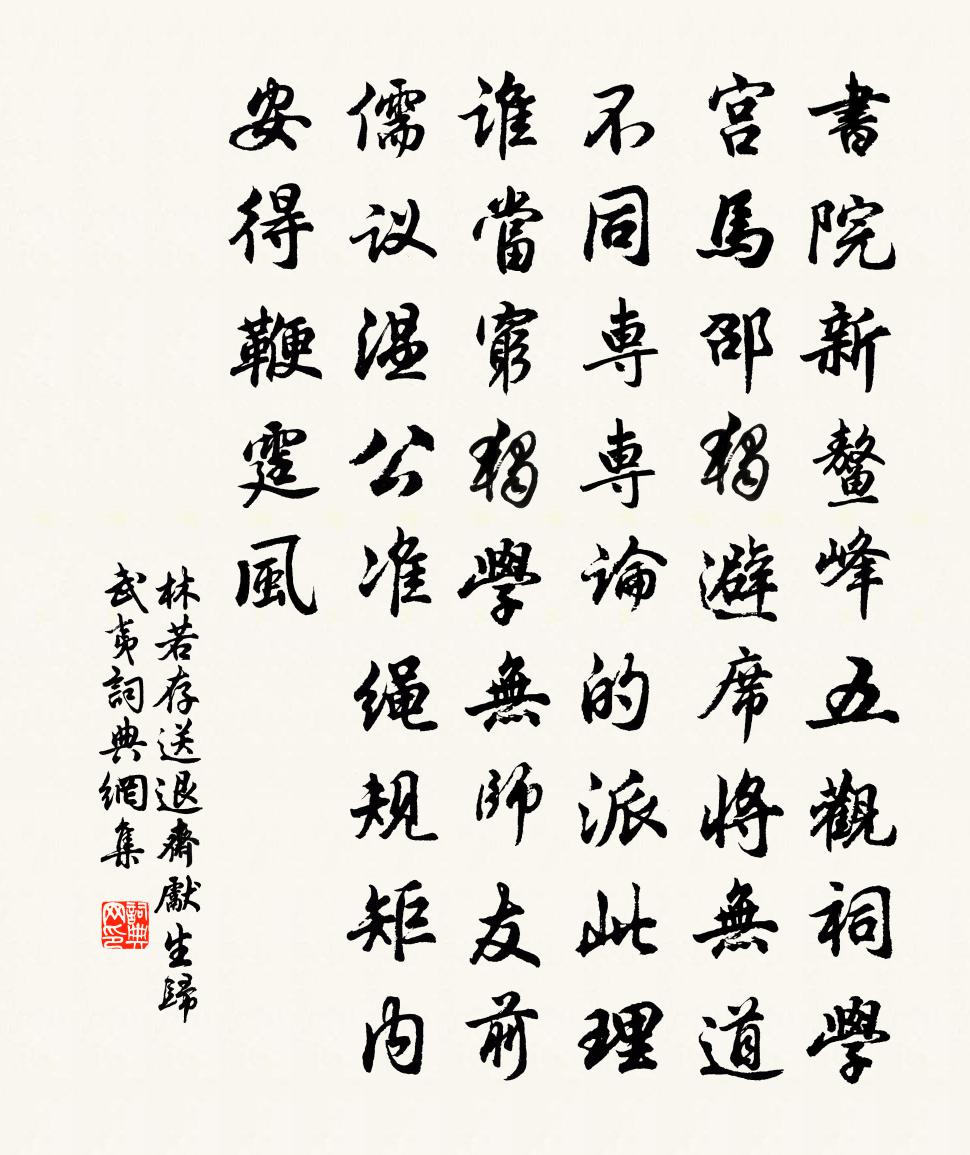 書院新鼇峰五觀祠學
宫馬邵獨避席將無道
不同専専論的派此理
誰當窮獨學無師友前
儒议温公准绳规矩内
安得鞭霆風
林若存送退齋獻生歸
武夷詞典網集
詞典网印